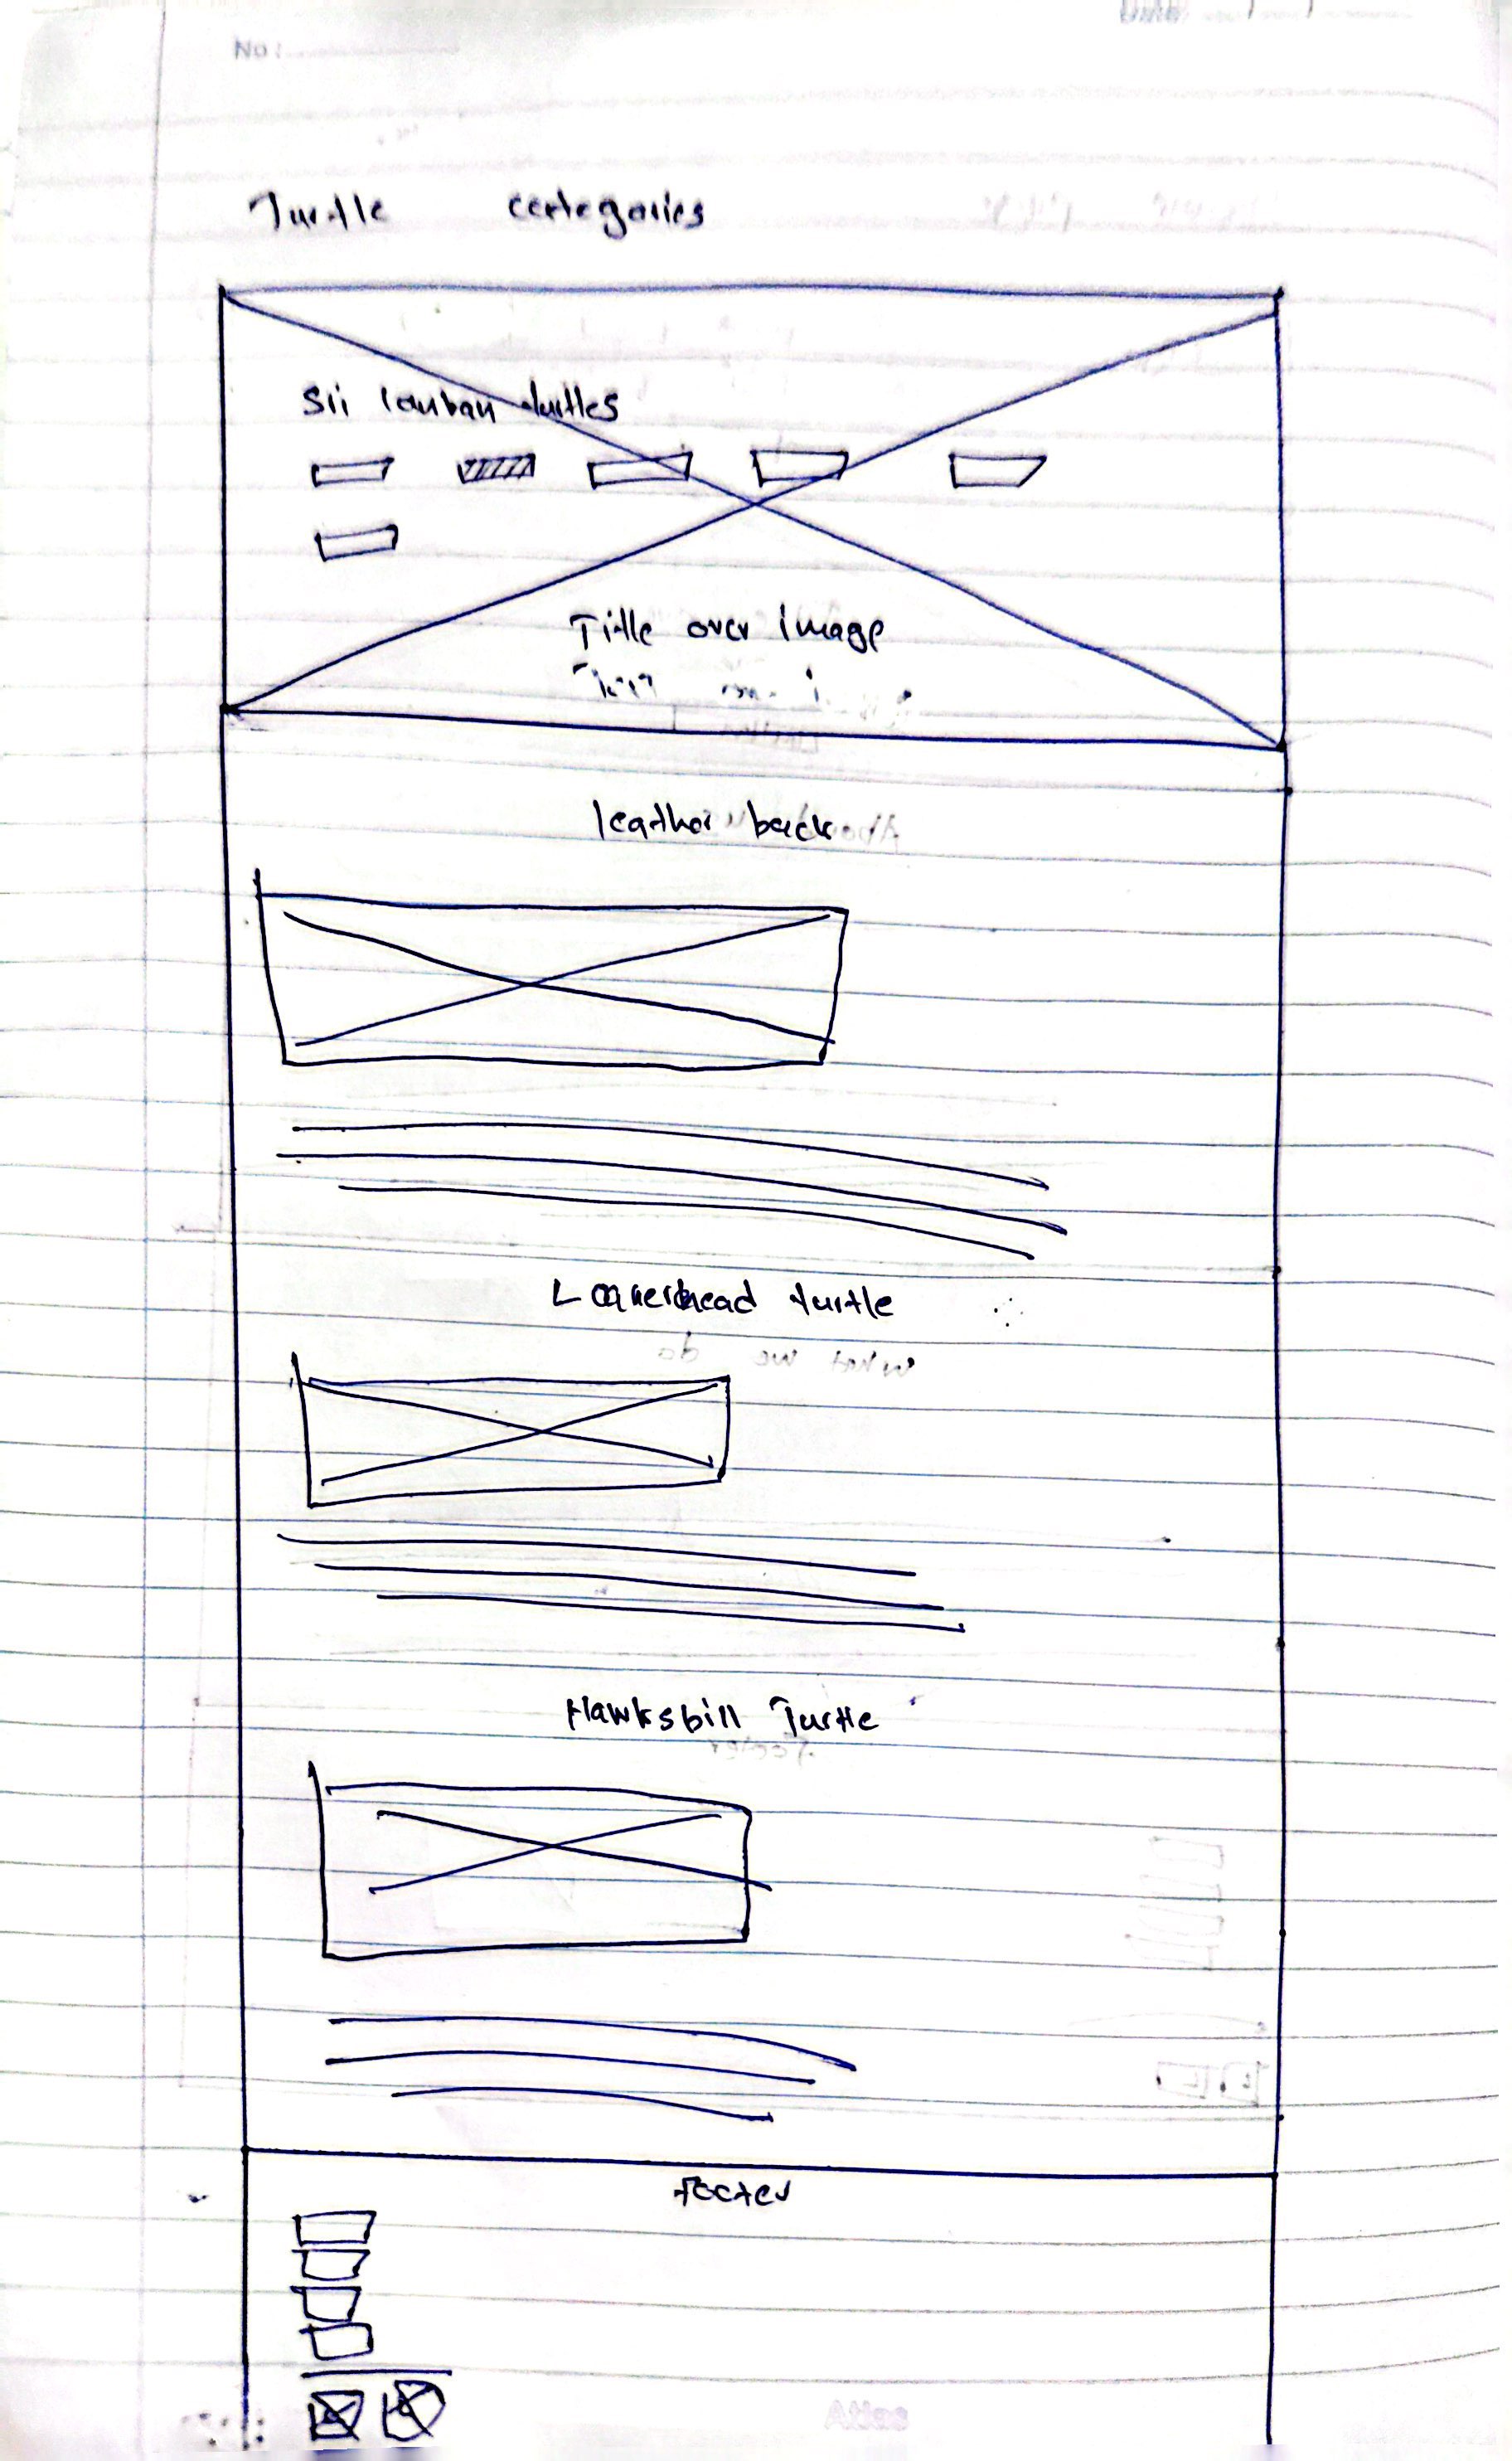 No:
Turtle categories
Sri lankan turtles
Title over image
leather back
Loggerhead turtle
what we do
Hawksbill Turtle
footer